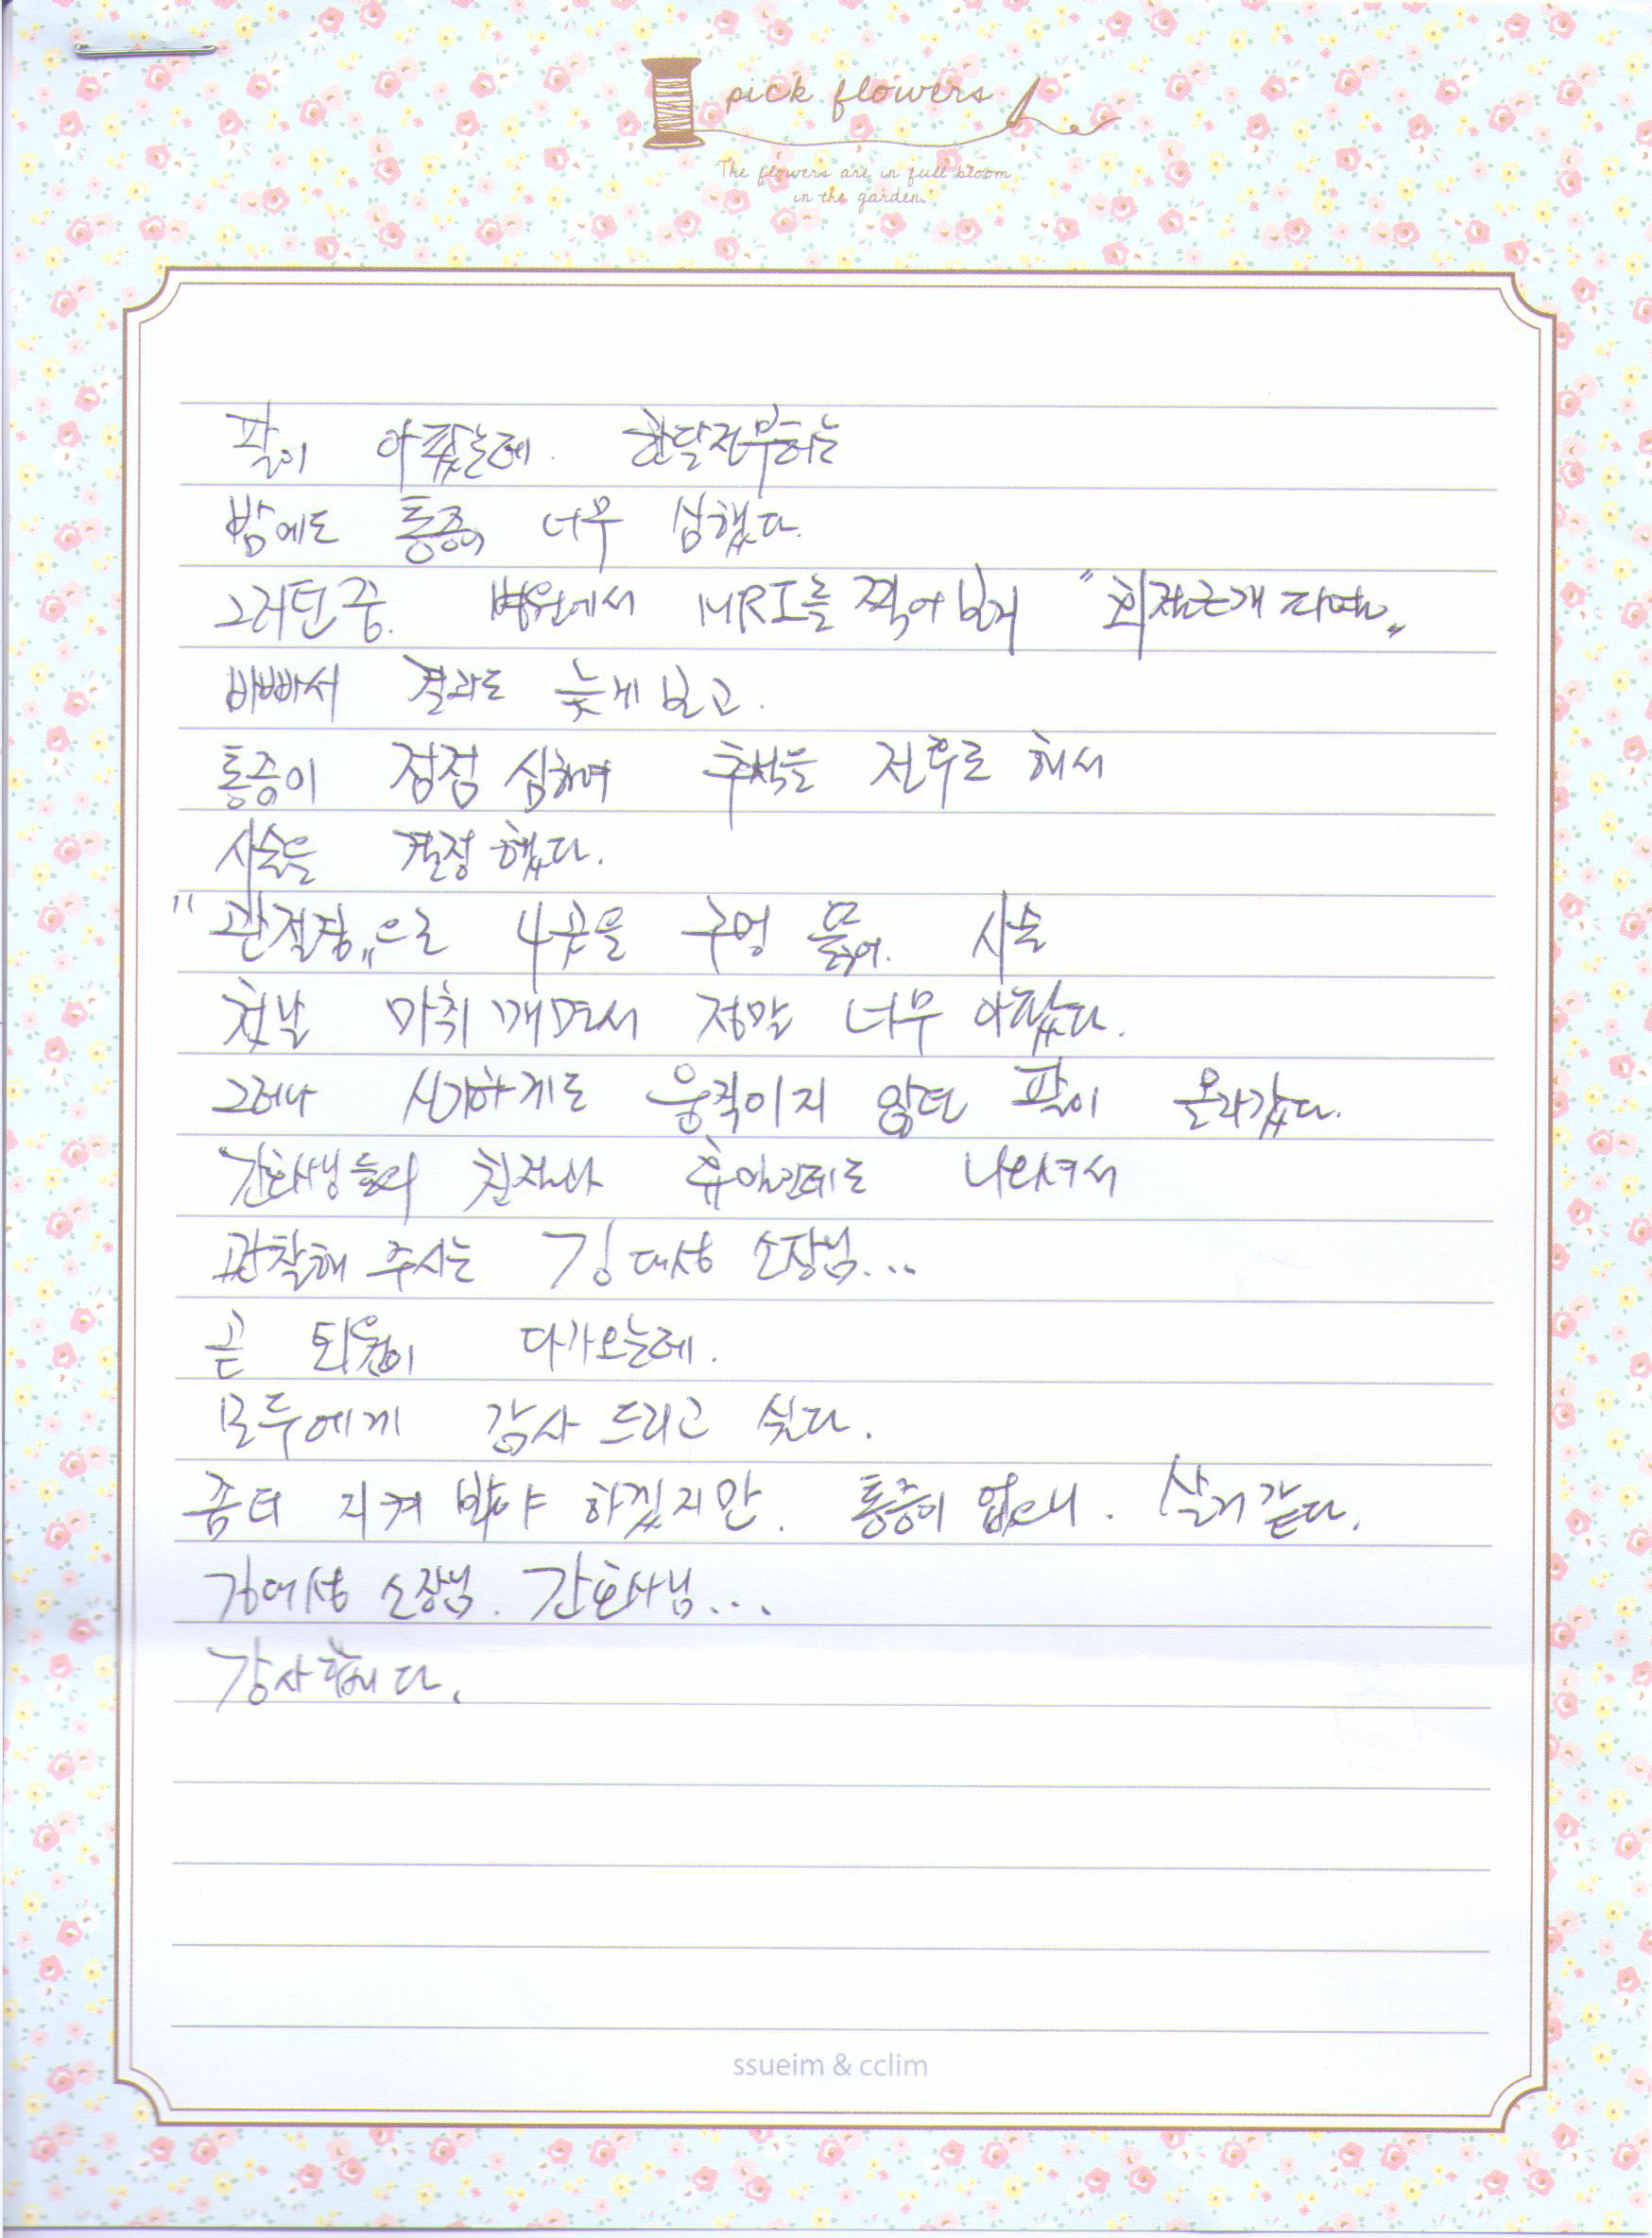 pick flowers
The flowers are in full bloom
in the garden.
팔이 아팠는데. 한달전부터는
밤에도 통증이 너무 심했다.
그러던중. 병원에서 MRI를 찍어보니 "회전근개 파열"
바빠서 결과도 늦게보고.
통증이 점점 심하여 추석을 전후로 해서
시술을 결정했다.
"관절경"으로 4곳을 구멍 뚫어. 시술
첫날 마취 깨면서 정말 너무 아팠다.
그러나 신기하게도 움직이지 않던 팔이 올라갔다.
간호사님들의 친절과 휴일인데도 나와서
관찰해 주시는 김대성 소장님...
곧 퇴원이 다가오는데.
모두에게 감사 드리고 싶다.
좀더 지켜 봐야 하겠지만. 통증이 없으니. 살거 같다.
김대성 소장님. 간호사님...
감사합니다.
ssueim & cclim